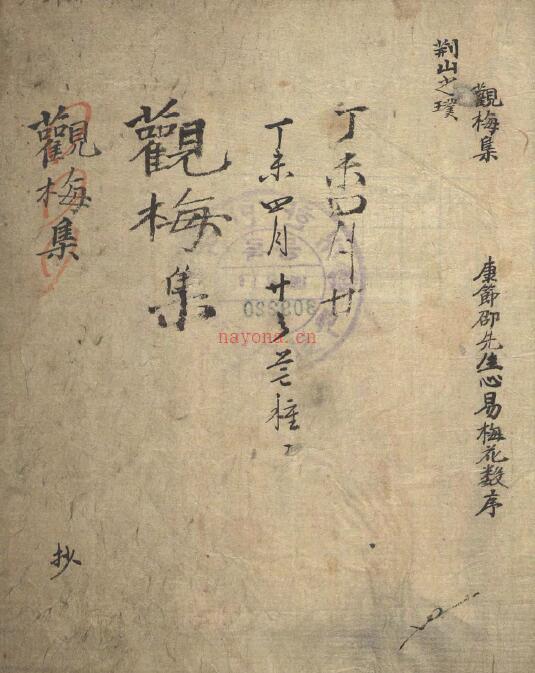 觀梅集
康節邵先生心易梅花数序
荆山之璞
丁未四月廿
丁未四月廿
觀梅集
觀梅集
抄
nayona.cn